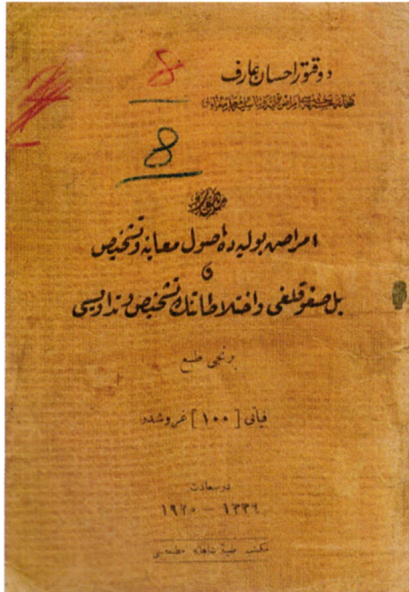 دوقتور احسان عارف
8
8
امراض بوليه ده اصول معاينه و تشخيص
و
بل صغوقلغى و اختلاطاتنك تشخيص و تداويسى
برنجى طبع
فيأتى [١٠٠] غروشدر
درسعادت
١٣٣٦ — ١٩٢٠
مكتب طبيۀ شاهانه مطبعه سى